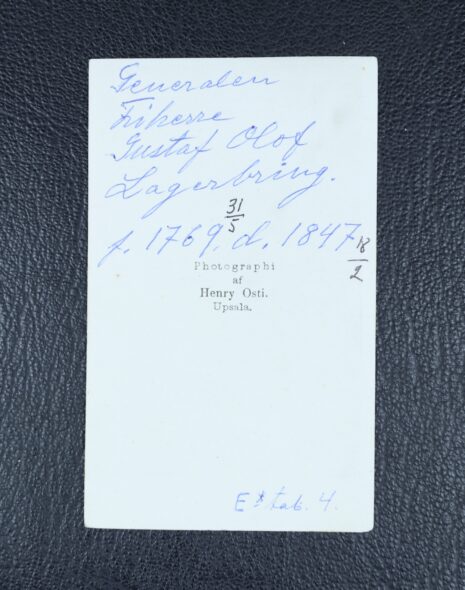 Generalen
Friherre
Gustaf Olof
Lagerbring.
f. 1769 31/5 d. 1847 18/2
Photographi
af
Henry Osti.
Upsala.
E* tab. 4.